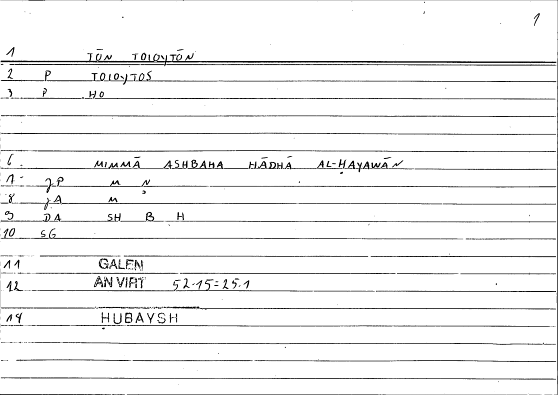 1
1 TŌN TOIOYTŌN
2 P TOIOYTOS
3 P HO
6. MIMMĀ ASHBAHA HĀDHĀ AL-ḤAYAWĀN
7 JP M N
8 JA M
9 DA SH B H
10 SG
11 GALEN
12 AN VIRT 52.15=25.1
14 ḤUBAYSH